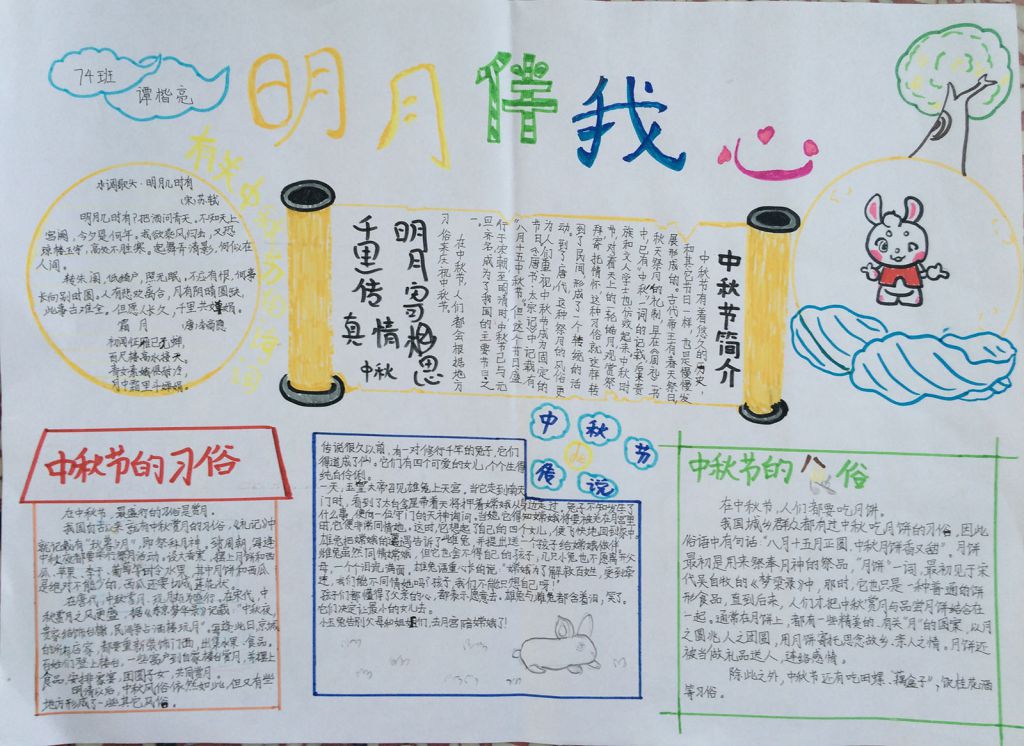 74班
谭楷亮
明月伴我心
有关中秋节的诗词
水调歌头·明月几时有
(宋)苏轼
明月几时有?把酒问青天。不知天上
宫阙,今夕是何年。我欲乘风归去,又恐
琼楼玉宇,高处不胜寒。起舞弄清影,何似在
人间。
转朱阁,低绮户,照无眠。不应有恨,何事
长向别时圆。人有悲欢离合,月有阴晴圆缺,
此事古难全。但愿人长久,千里共婵娟。
霜月
(唐)李商隐
初闻征雁已无蝉,
百尺楼高水接天。
青女素娥俱耐冷,
月中霜里斗婵娟。
中秋节简介
中秋节有着悠久的历史,
和其它节日一样,也是慢慢发
展形成的。古代帝王有春天祭日,
秋天祭月的礼制,早在《周礼》一书
中,已有“中秋”一词的记载。后来贵
族和文人学士也仿效起来,中秋时
节,对着天上的
观赏祭
拜,寄托情怀,这种习俗就这样转
到了民间,形成了一个传统的活
动。到了唐代,这种祭月的风俗更
为人们重视,中秋节成为固定的
节日,《唐书·太宗记》中记载有
“八月十五中秋节”。但这个节日盛
行于宋朝,至明清时,中秋节已与元
旦齐名,成为了我国的主要节日之
一。
在中秋节,人们都会根据地方
习俗来庆祝中秋节。
明月寄相思
千里传真情
中秋
中秋节的习俗
在中秋节,最盛行的习俗是赏月。
我国自古以来就有中秋赏月的习俗,《礼记》中
就记载有“秋暮夕月”,即祭拜月神。到周朝,每逢
中秋夜都要举行赏月活动。设大香案,摆上月饼和西
瓜、苹果、李子、葡萄等时令水果,其中月饼和西瓜
是绝对不能少的,西瓜还要切成莲花状。
在唐代,中秋赏月、玩月颇为盛行。在宋代,中
秋赏月之风更盛,据《东京梦华录》记载:“中秋夜,
贵家结饰台榭,民间争占酒楼玩月”。每逢此日,京城
的所有店家,都要重新装饰门面,出售水果、食品。
百姓们登上楼台,一些富户到自家楼台赏月,并摆上
食品,安排家宴,团圆子女,共同赏月。
明清以后,中秋风俗依然如此,但又有些
地方形成了一些其它风俗。
中秋节de传说
传说很久以前,有一对修行千年的兔子,它们
得道成了仙。它们有四个可爱的女儿,个个生得
纯白伶俐。
一天,玉皇大帝召见雄兔上天宫,当它走到南天
门时,看到了太白金星带着天将押着嫦娥从身边走过,兔子不知发生了
什么事,便向一位守门的天神询问。当她,它得知嫦娥将要被关在月宫里
时,它便非常同情她。这时,它想起了自己的四个女儿,便飞快地回到家中。
雄兔把嫦娥的遭遇告诉了雌兔,并提出送一个孩子给嫦娥做伴。
雌兔虽然同情嫦娥,但它也舍不得自己的孩子,几只小兔也不愿离开父
母,一个个泪流满面。雄兔语重心长的说:“嫦娥为了解救百姓,受到牵
连,我们能不同情她吗?孩子,我们不能只想自己呀!”
孩子们都懂得了父亲的心,都表示愿意去。雄兔与雌兔都含着泪,笑了。
它们决定让最小的女儿去。
小玉兔告别父母和姐姐们,去月宫陪嫦娥了!
中秋节的八俗
在中秋节,人们都要吃月饼。
我国城乡群众都有过中秋吃月饼的习俗,因此
俗语中有句话:“八月十五月正圆,中秋月饼香又甜”。月饼
最初是用来祭奉月神的祭品,“月饼”一词,最初见于宋
代吴自牧的《梦粱录》中,那时,它也只是一种普通的饼
形食品,直到后来,人们才把中秋赏月与品尝月饼结合在
一起。通常在月饼上,都有一些精美的、有关“月”的图案,以月
之圆兆人之团圆,用月饼寄托思念故乡、亲人之情。月饼还
被当做礼品送人,连络感情。
除此之外,中秋节还有吃田螺、“藕盒子”、饮桂花酒
等习俗。